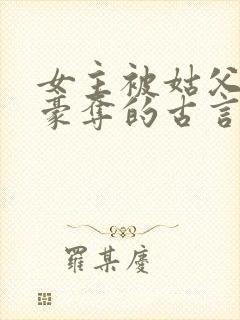 女主被姑父
豪夺的古言
罗某庆